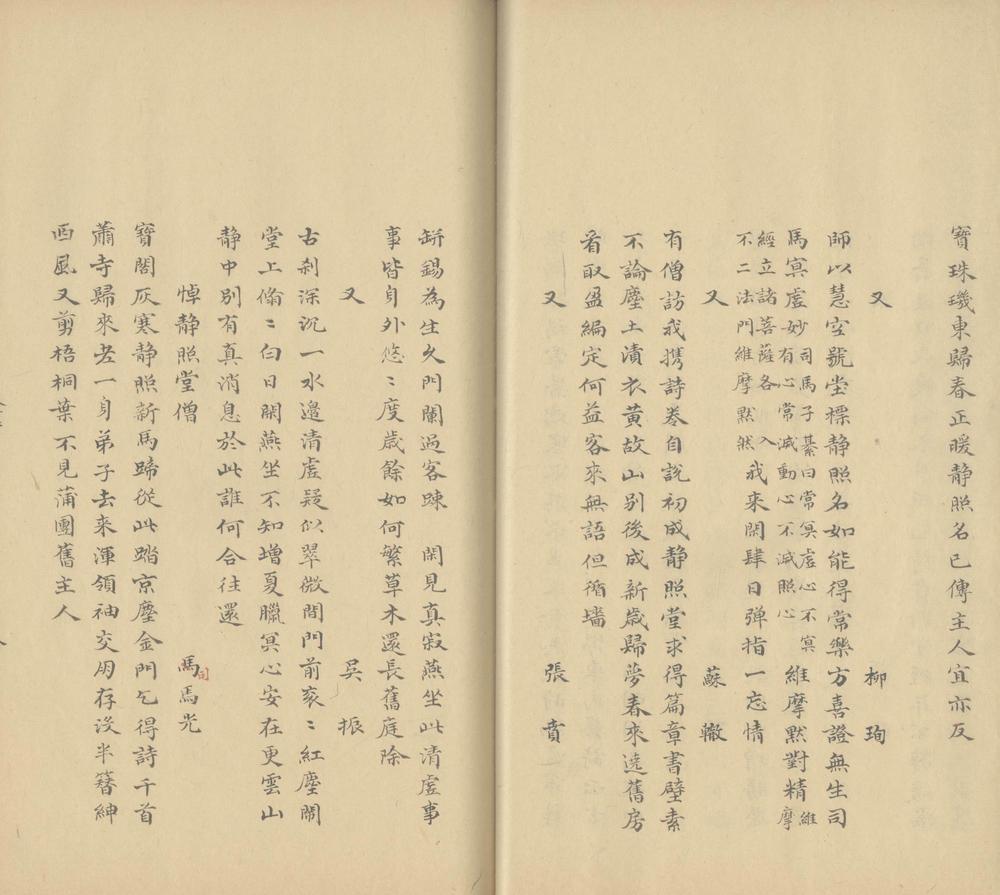 寶珠璣東歸春正暖静照名已傳主人宜亦反
又　柳珣
師以慧空號堂標静照名如能得常樂方喜證無生司
馬㝠虛妙司馬子綦曰常㝠虛心不㝠有心常滅動心不滅照心維摩默對精維摩
經立諸菩薩各入不二法門維摩默然我來閑肆日彈指一忘情
又　蘇轍
有僧訪我攜詩卷自說初成静照堂求得篇章書壁素
不論塵土漬衣黄故山别後成新歳歸夢春來遶舊房
看取盈編定何益客來無語但循墻
又　張賁
缾錫為生久門闌過客踈　閑見真寂燕坐此清虛事
事皆身外悠〻度歳餘如何繁草木還長舊庭除
又　吴振
古刹深沉一水邉清虛疑似翠微間門前衮〻紅塵閙
堂上翛〻白日閑燕坐不知増夏臘㝠心安在更雲山
静中别有真消息於此誰何合往還
悼静照堂僧　司馬光
寶閣灰寒静照新馬蹄從此踏京塵金門乞得詩千首
蕭寺歸來老一身弟子去來渾領袖交朋存没半簮紳
西風又剪梧桐葉不見蒲團舊主人